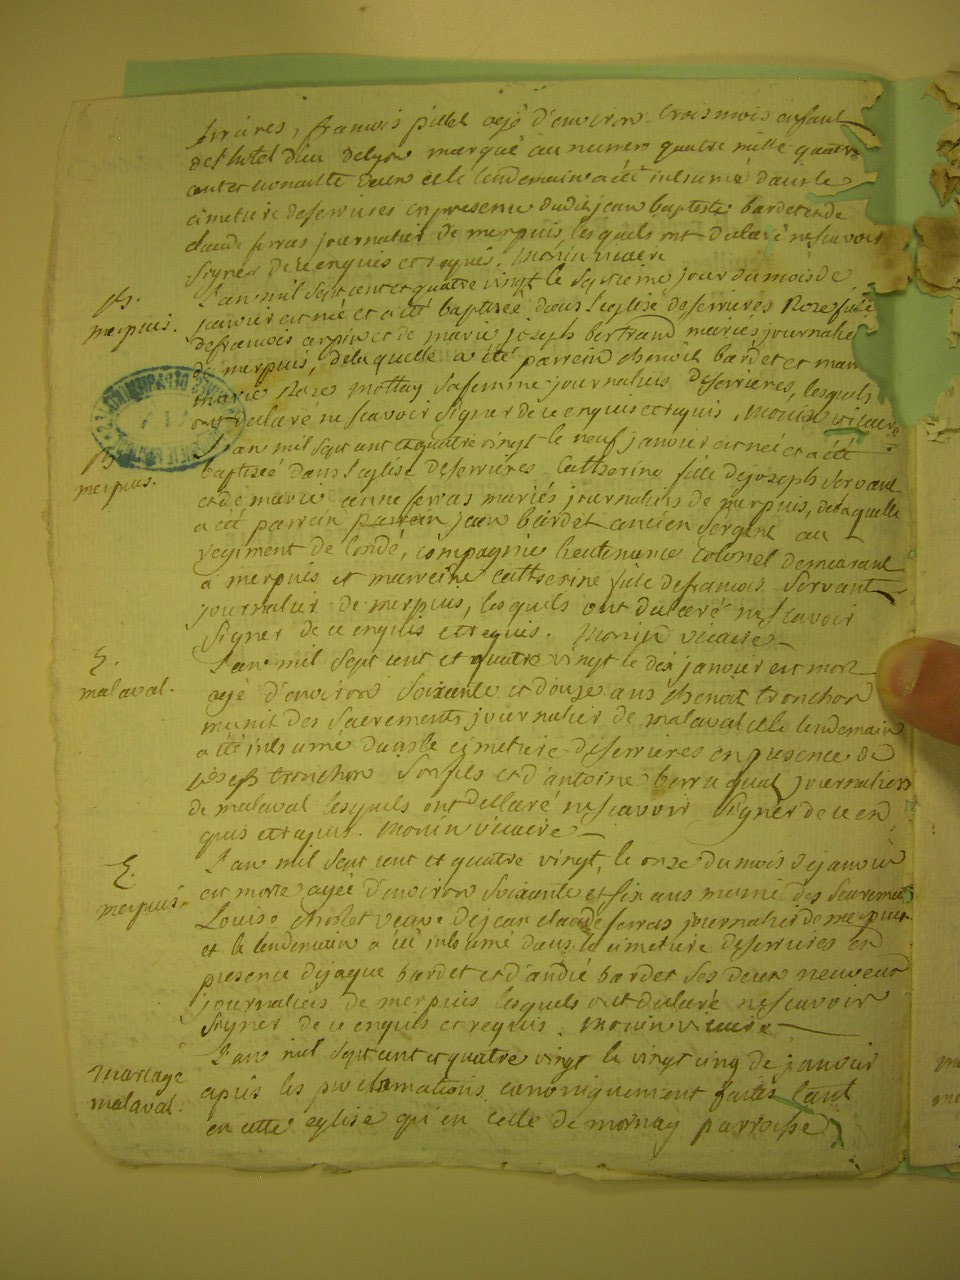 ferrieres, francois pillet agé d'environ trois mois enfant
de l'hotel dieu de lyon marqué au numero quatre mille quatre
cent et le lendemain a été inhumé dans le
cimetiere de ferrieres en presence dudit jean baptiste bardet et de
claude ferras journalier de merpuis lesquels ont declaré ne scavoir
signer de ce enquis et requis. monin vicaire
B. L'an mil sept cent et quatre vingt le septieme jour du mois de
merpuis. janvier est née et a été baptisée dans l'eglise de ferrieres Roze fille
de francois arpin et de marie joseph bertrand mariés journaliers
de merpuis, de laquelle a été parrein benoit bardet et marr
marie Roze mottay sa femme journaliers de ferrieres, lesquels
ont declaré ne scavoir signer de ce enquis et requis, monin vicaire
B. L'an mil sept cent et quatre vingt le neuf janvier est née et a été
merpuis. baptisée dans l'eglise de ferrieres Catherine fille de joseph servant
et de marie anne ferras mariés journaliers de merpuis, de laquelle
a été parrein parrein jean bardet ancien sergent au
regiment de Condé, compagnie lieutenance Colonel demeurant
a merpuis et marreine catherine fille de francois Servant
journalier de merpuis, lesquels ont declaré ne scavoir
signer de ce enquis et requis. monin vicaire
E. L'an mil sept cent et quatre vingt le dix janvier est mort
malaval. agé d'environ soixante et douze ans benoit tronchon
munit des sacrements journalier de malaval et le lendemain
a été inhumé dans le cimetiere de ferrieres en presence de
joseph tronchon son fils et d'antoine journaliers
de malaval lesquels ont declaré ne scavoir signer de ce en
quis et requis. monin vicaire
E. L'an mil sept cent et quatre vingt, le onze du mois de janvier
merpuis. est morte agée d'environ soixante et six ans munie des sacrements
Louise veuve de jean claude ferras journalier de merpuis
et le lendemain a été inhumé dans le cimetiere de ferrieres en
presence de jaque bardet et d'andré bardet ses deux neuveux
journaliers de merpuis lesquels ont declaré ne scavoir
signer de ce enquis et requis. monin vicaire
L'an mil sept cent et quatre vingt le vingt cinq de janvier
mariage aprés les proclamations canoniquement faites tant
malaval. en cette eglise qu'en celle de mornay parroisse